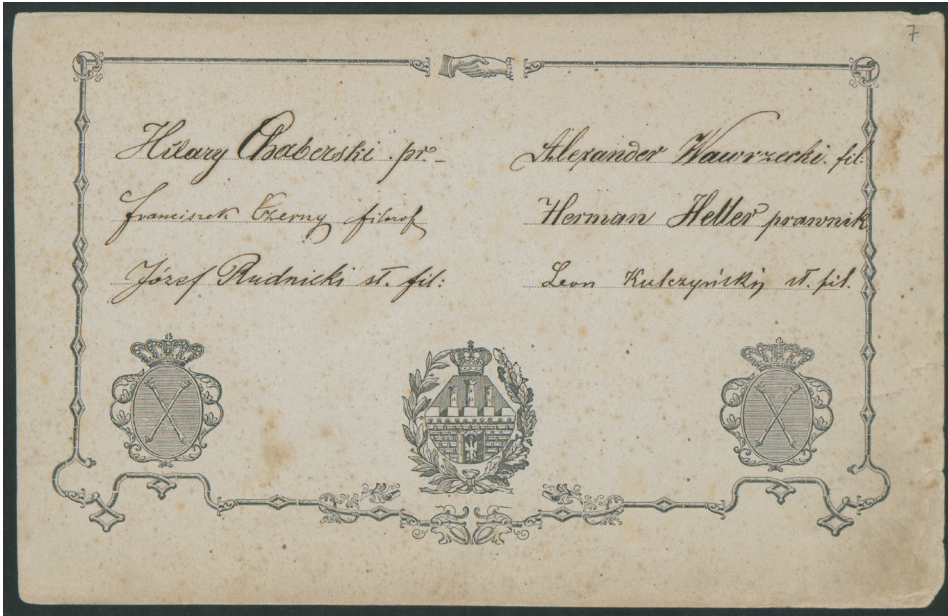 7
Hilary Chaberski pr. –
Franciszek Czerny filozof
Józef Rudnicki st. fil:
Alexander Wawrzecki fil:
Herman Heller prawnik
Leon Kulczyńskij st. fil.